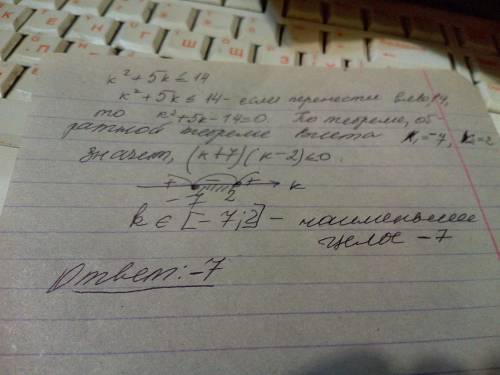 k² + 5k ≤ 14
k² + 5k ≤ 14 - если перенести влево 14,
то k² + 5k - 14 = 0. По теореме, об
ратной теореме Виета k₁ = -7, k₂ = 2
значит, (k+7)(k-2) ≤ 0.
+ - + k
-7 2
k ∈ [-7; 2] - наименьшее
целое -7
Ответ: -7